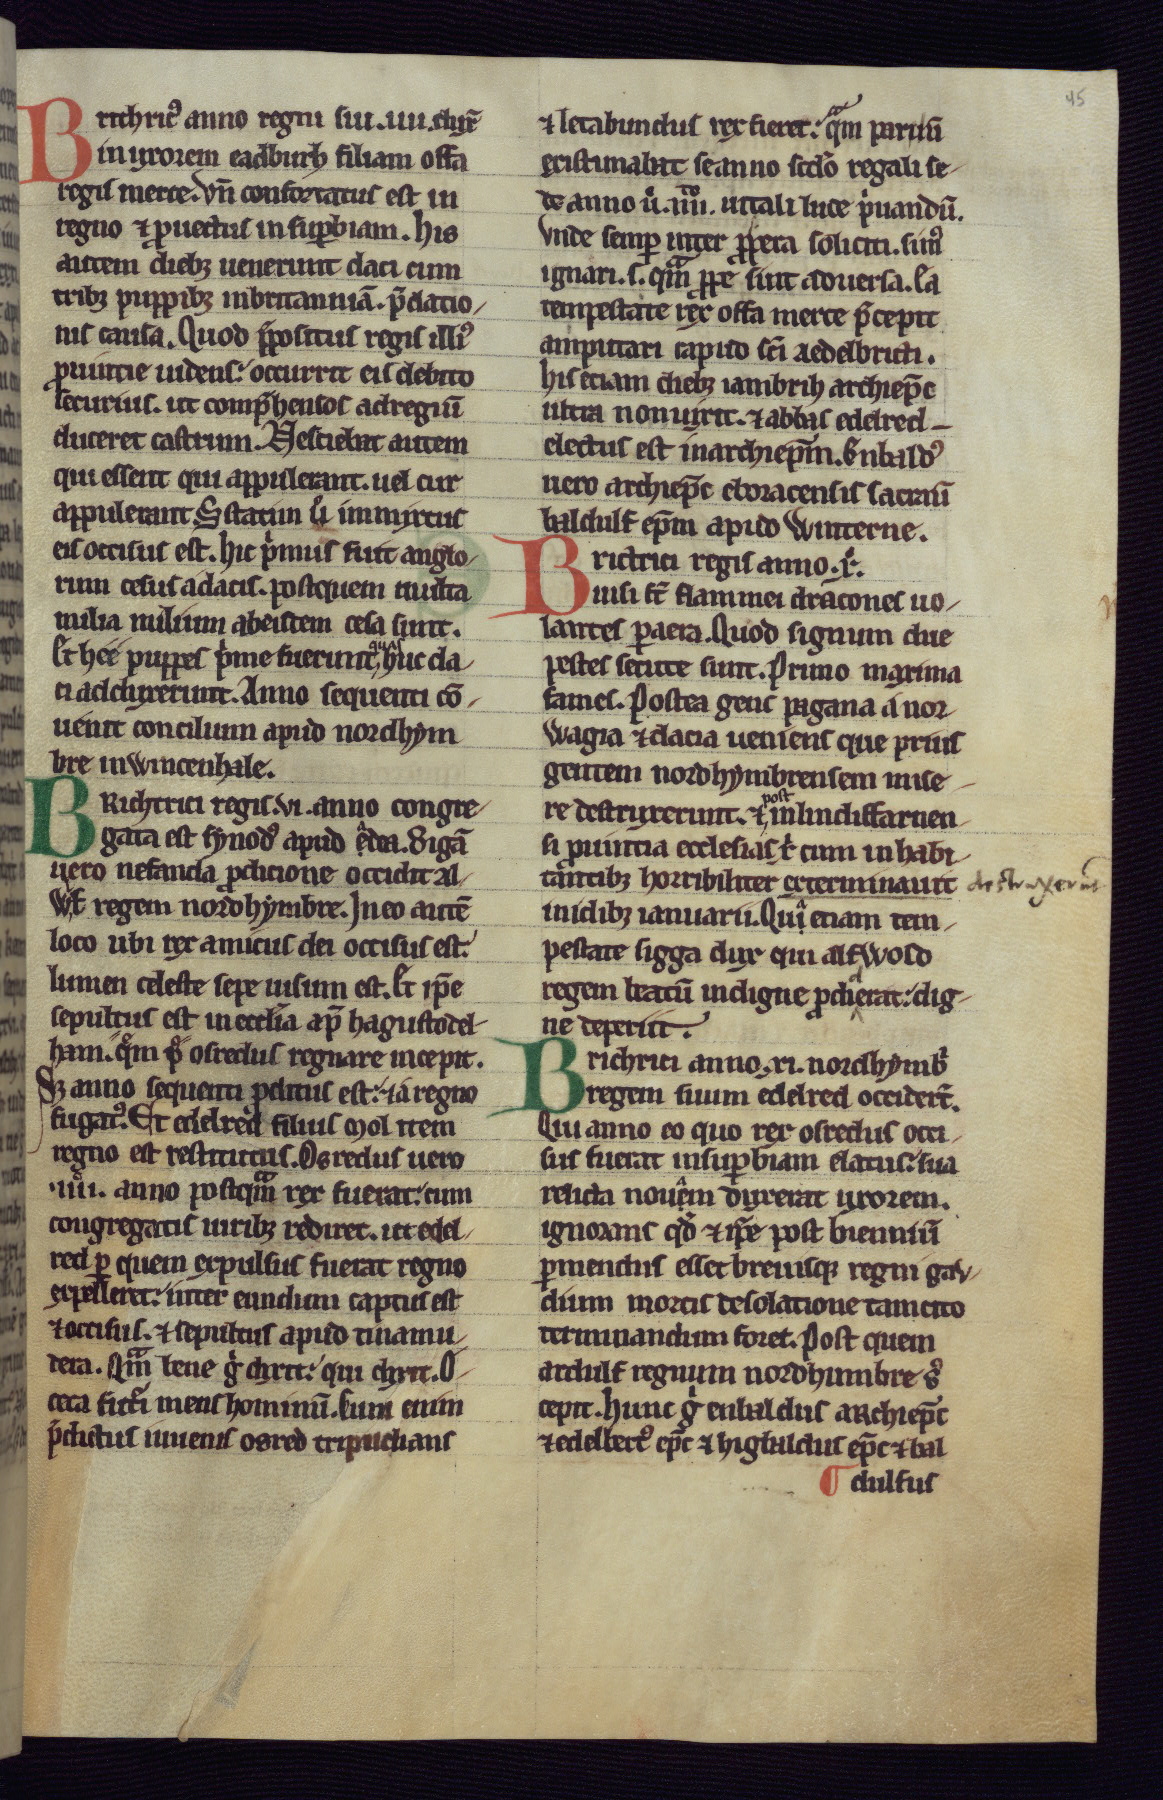 45
Brichricꝰ anno regni sui .iiii. duxͭ
in uxorem eadburh filiam offa
regis merce. Vn̄ confortatus est in
regno ⁊ ꝓuectus in suꝑbiam. His
autem diebꝫ uenerunt daci cum
tribꝫ puppibꝫ in britanniā. p̄datio-
nis causa. Quod p̄positus regis illiꝰ
ꝓuintie uidens: occurrit eis debito
securius. ut comp̄hensos ad regiū
duceret castrum. Nesciebat autem
qui essent qui appulerant. uel cur
appulerant. Statim u̓ immixtus
eis occisus est. Hic p̓mus fuit anglo-
rum cesus a dacis. post quem multa
milia milium ab eisdem cesa sunt.
Et hee puppes p̓me fuerunt, q̓s huc da-
ci adduxerunt. Anno sequenti cō-
uenit concilium apud nordhym
bre in wincenhale.
BRichtrici regis .vi. anno congre-
gata est synodꝰ apud . Sigā
uero nefanda ꝓditione occidit al-
wlf regem nordhymbre. In eo autē
loco ubi rex amicus dei occisus est:
lumen celeste sepe uisum est. Et ip̄e
sepultus est in eccl̄ia ap̄ hagustodel
ham. q̓m p̓ osredus regnare incepit.
Sꝫ anno sequenti ꝓditus est: ⁊ a regno
fugatꝰ. Et edelred filius mol item
regno est restitutus. Osredus uero
.iiii. anno postqᵃm rex fuerat: cum
congregatis uiribꝫ rediret. ut edel-
red ꝑ quem expulsus fuerat regno
expelleret: inter eundum captus est
⁊ occisus. ⁊ sepultus apud tinamu-
dera. Qᵃm bene g̓ dixit: qui dixit. O
ceca fut̓i mens hominū. Cum enim
p̄dictus iuuenis osred tripudians
⁊ letabundus rex fieret: qᵃm paruū
existimabat se anno scdo regali se-
de anno u̓ .iiiiᵗᵒ. uitali luce p̓uandū.
Vnde semꝑ inter ꝓspera soliciti. simꝰ
ignari .s. qᵃm ꝓpe sint aduersa. Ea
tempestate rex offa merce p̄cepit
amputari capud sc̄i aedelbricti.
His etiam diebꝫ iambrih archiep̄c
ultra non uixit. ⁊ abbas edelred
electus est in archiep̄m. Enbaldꝰ
uero archiep̄c eboracensis sacrauit
baldulf ep̄m apud Winterne.
Brictrici regis anno .x̊.
uisi sūt flammei dracones uo-
lantes ꝑ aera. Quod signum due
pestes secute sunt. Primo maxima
fames. Postea gens pagana a nor-
wagia ⁊ dacia ueniens que prius
gentem nordhymbrensem mise-
re destruxerunt. ⁊ post in lindiffarnen-
si ꝓuintia ecclesias x̓ cum inhabi-
tantibꝫ horribiliter exterminauit destruxerunt
in idibꝫ ianuarii. Qua etiam tem-
pestate sigga dux qui alfwold
regem beatū indigne ꝓdiderat: dig-
ne deperiit.
Brichrici anno .xi. nordhymb̓
regem suum edelred occider̄t.
Qui anno eo quo rex osredus occi-
sus fuerat in suꝑbiam elatus: sua
relicta nouam duxerat uxorem.
ignorans qd̓ ⁊ ip̄e post bienniū
ꝑimendus esset breuisqꝫ regni gau-
dium mortis desolatione tam cito
terminandum foret. Post quem
ardulf regnum nordhumbre s̓
cepit. Hunc g̓ enbaldus archiep̄c
⁊ edelbertꝰ ep̄c ⁊ higbaldus ep̄c ⁊ bal
dulfus